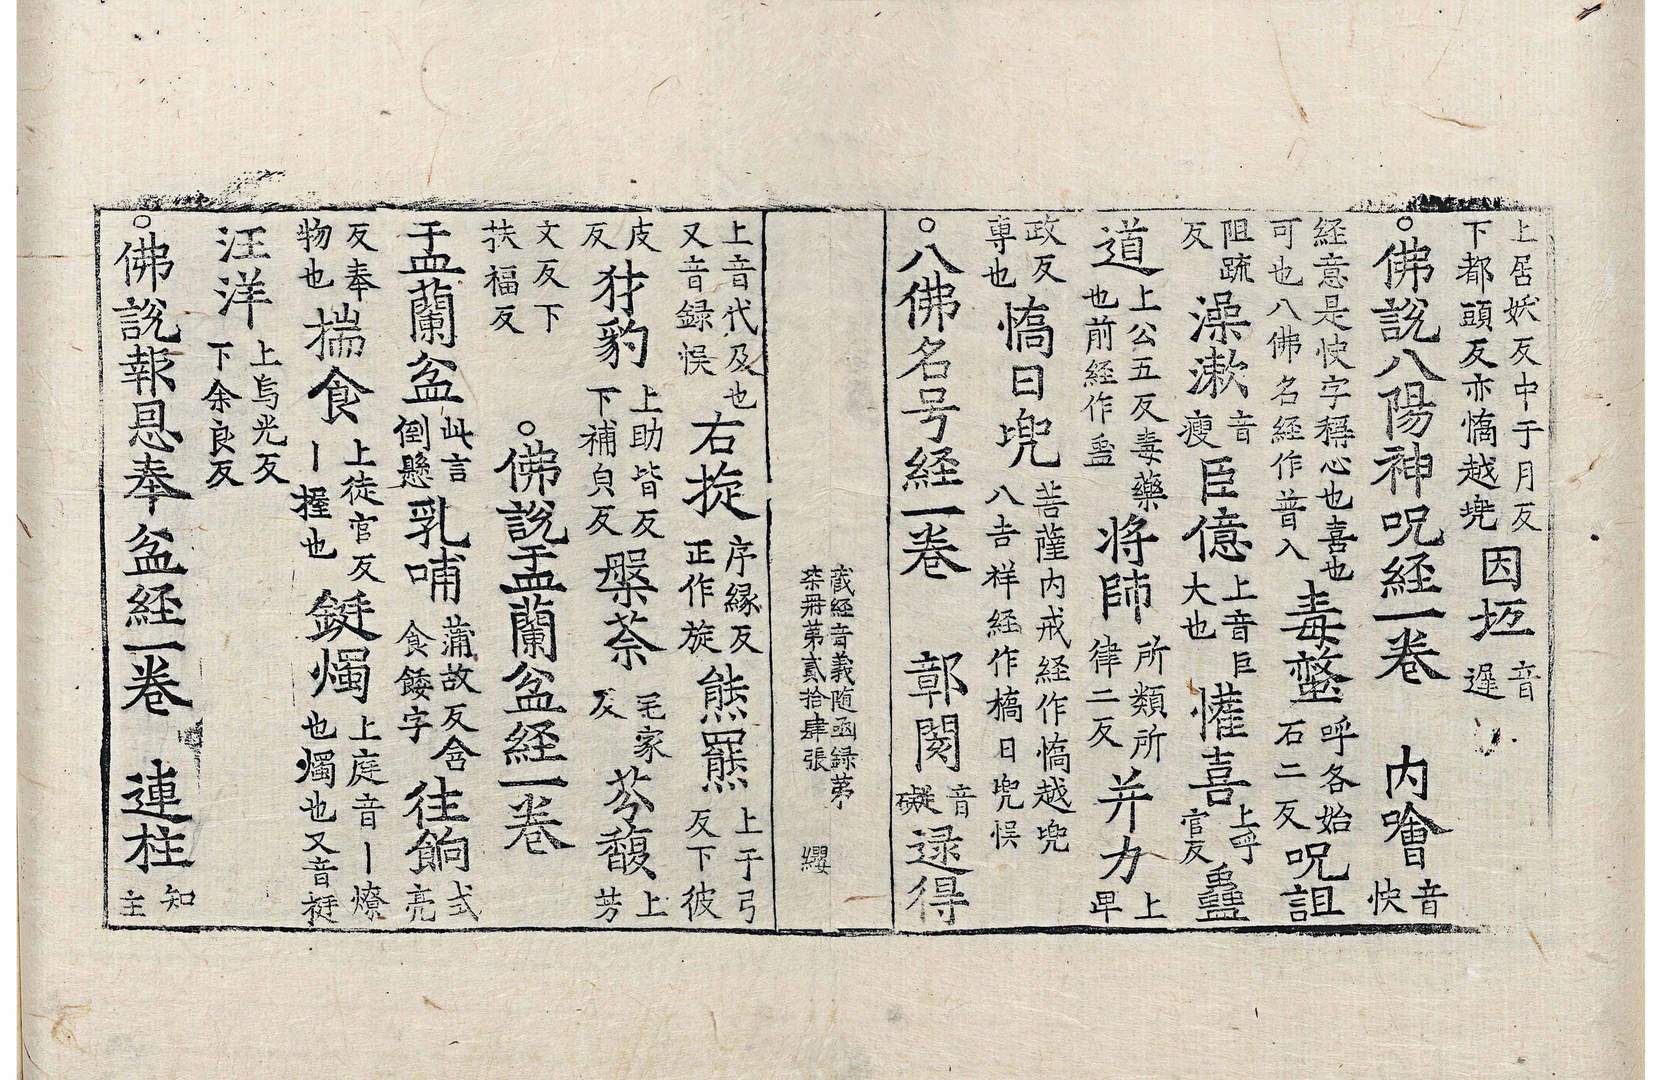 上居妖反中于月反下都頭反亦憍越兠因坘音遲
。佛說八陽神呪経一卷 内噲音快
経意是快字稱心也喜也可也八佛名経作普入毒螫呼各始石二反呪詛
阻疏反澡漱音瘦臣億上音巨大也懽喜上呼官反蠱
道上公五反毒藥也前経作蛊将帥所類所律二反并力上卑
政反專也憍曰兠菩薩内戒経作憍越兠八吉祥経作橋日兠悮
。八佛名号経一卷 鄣閡音礙逯得
藏経音義随函録第柒冊第貳拾肆張 纓
上音代及也又音録悮右捝序縁反正作旋熊羆上于弓反下彼
皮反犲豹上助皆反下補皃反槃荼宅家反芬馥上芳
文反下扶福反 。佛說盂蘭盆経一卷
盂蘭盆此言倒懸乳哺蒲故反含食餧字往餉式亮
反奉物也揣食上徒官反丨握也鋌燭上庭音丨燎也燭也又音挺
汪洋上烏光反下余良反
。佛說報恩奉盆経一卷 連柱知主